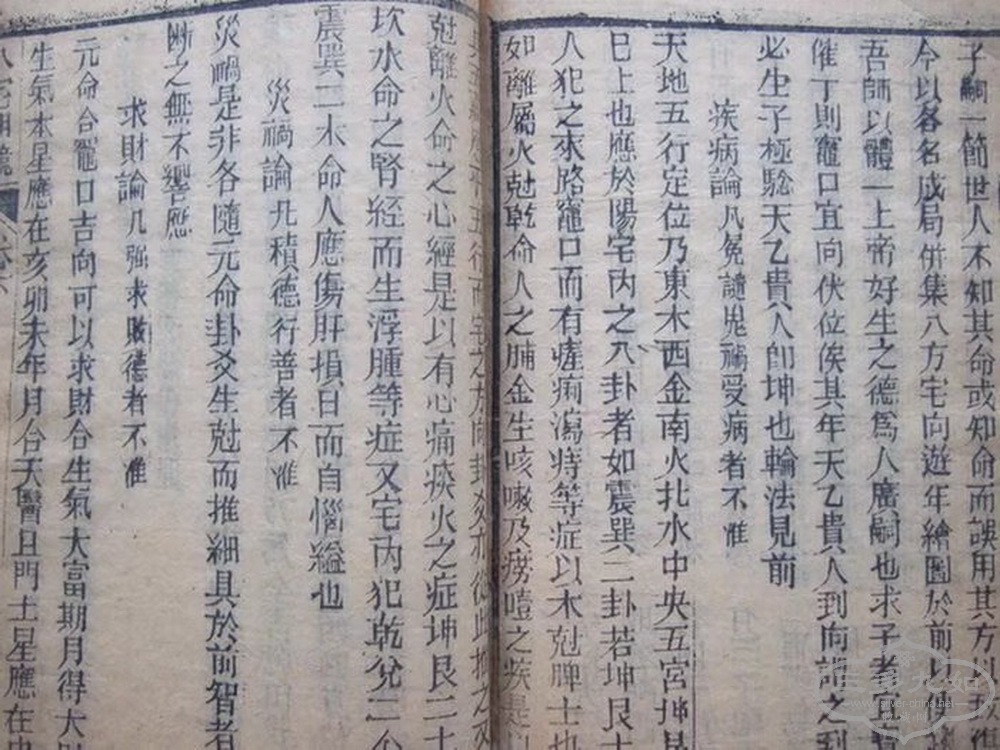 子嗣一節世人不知其命或知命而誤用其方以致
今以各名成局併集八方宅向遊年繪圖於前以傳
吾師以體一上帝好生之德為人廣嗣也求子者宜
催丁則竈口宜向伏位俟其年天乙貴人到向
必生子極騐天乙貴人卽坤也輪法見前
疾病論凡冤讎鬼禍受病者不准
天地五行定位乃東木西金南火北水中央五宮坤艮
巳上也應於陽宅內之八卦者如震巽二卦若坤艮
人犯之來路竈口而有瘧痢瀉痔等症以木尅脾士也
如離屬火尅乾命人之肺金生咳嗽及癆噎之疾是
五行而宅之方向卦爻亦從此推之
尅離火命之心經是以有心痛痰火之症坤艮二
坎水命之腎經而生浮腫等症又宅內犯乾兌二
震巽二木命人應傷肝損目而自惱縊也
災禍論凡積德行善者不准
災禍是非各隨元命卦爻生尅而推細具於前智者
斷之無不響應
求財論凡强求敗德者不准
元命合竈口吉向可以求財合生氣大富期月得大
生氣木星應在亥卯未年月合天醫且門土星應在
八宅明鏡